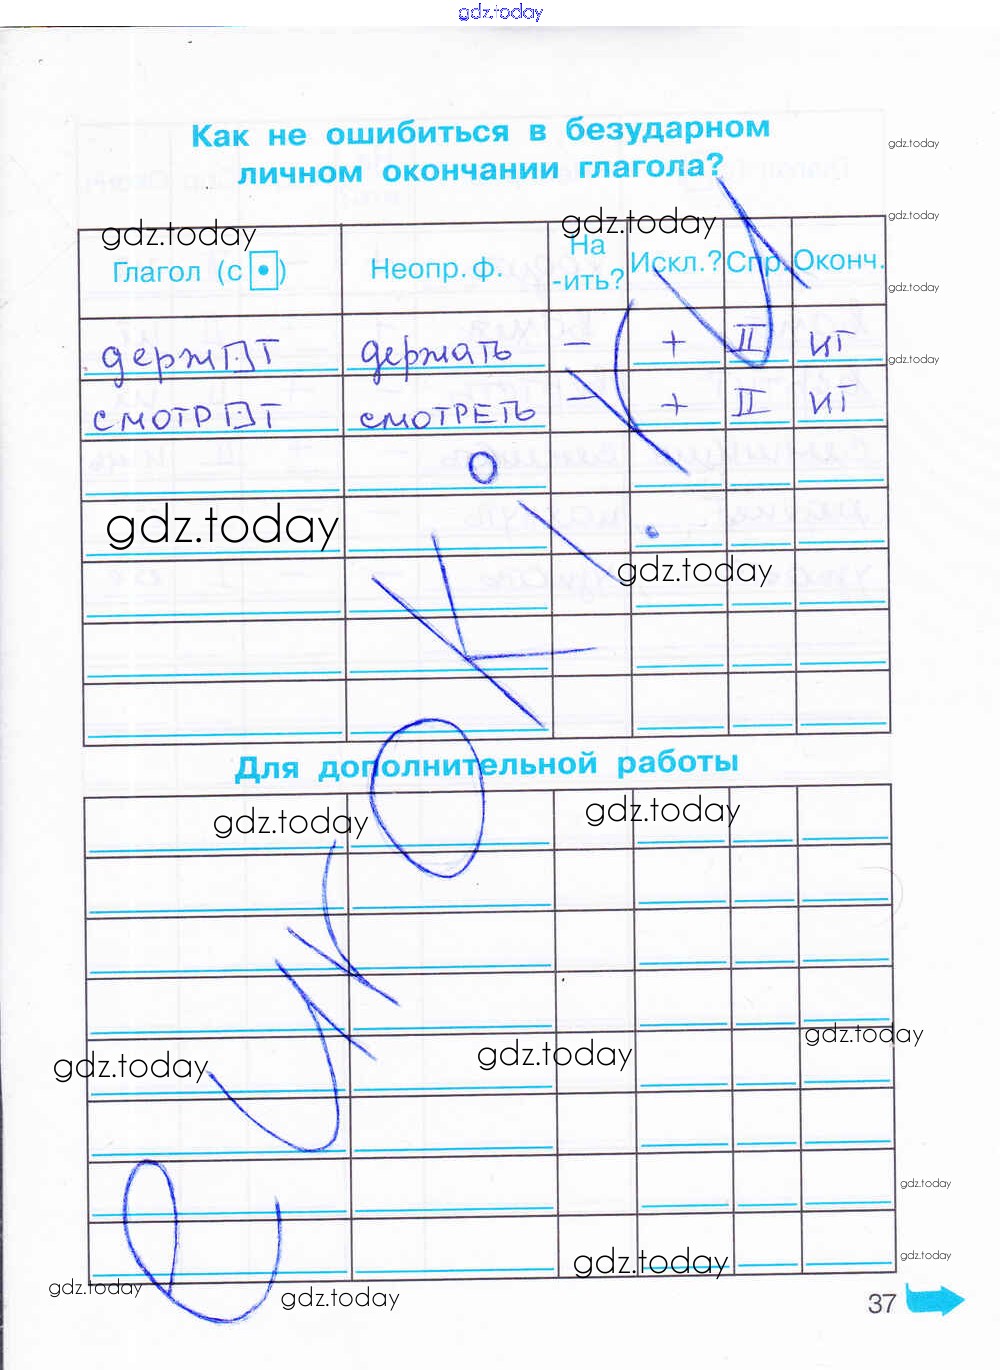 gdz.today
Как не ошибиться в безударном
личном окончании глагола?
gdz.today
gdz.today
gdz.today
gdz.today
Глагол (с •)
Неопр. ф.
На -ить?
Искл.?
Спр.
Оконч.
gdz.today
держ☐т держать – + II ит
gdz.today
смотр☐т смотреть – + II ит
gdz.today
gdz.today
Для дополнительной работы
gdz.today
gdz.today
gdz.today
gdz.today
gdz.today
gdz.today
gdz.today
gdz.today
gdz.today
gdz.today
37